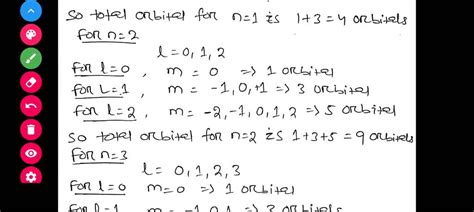 So total orbital for n=1 is 1+3=4 orbitals
For n=2
l=0,1,2
For l=0, m = 0 => 1 orbital
For L=1, m = -1,0,+1 => 3 orbital
For l=2, m = -2,-1,0,1,2 => 5 orbital
So total orbital for n=2 is 1+3+5=9 orbitals
For n=3
l = 0,1,2,3
For l=0 m=0 => 1 orbital
For l=1 m = -1 0 1 => 3 orbitals